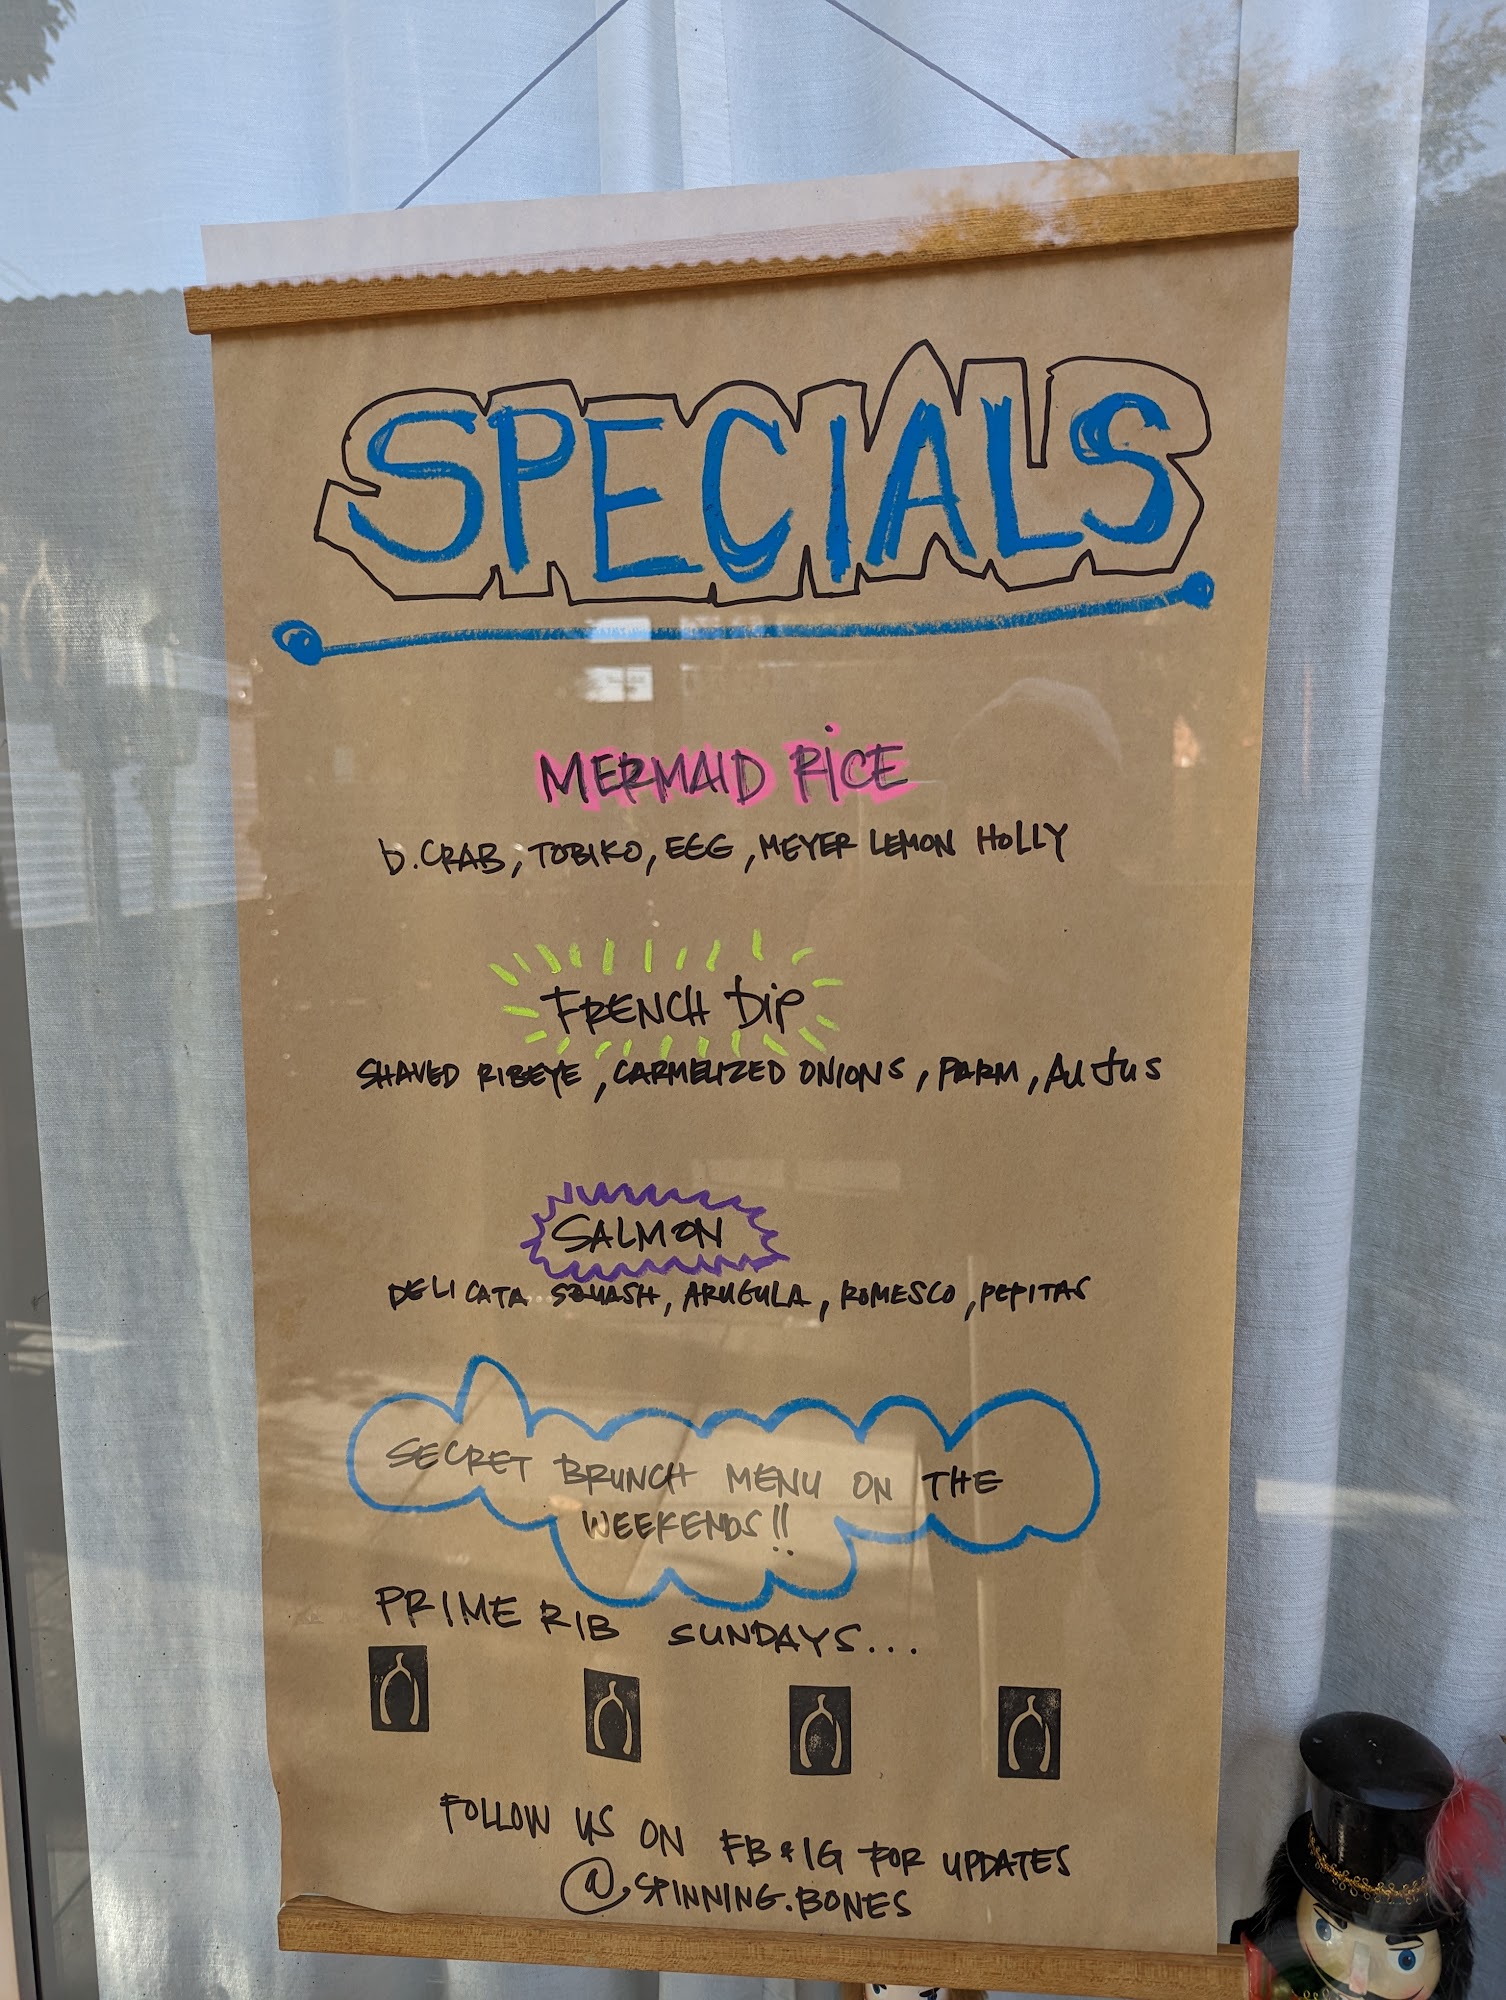 SPECIALS
MERMAID RICE
D. CRAB, TOBIKO, EGG, MEYER LEMON HOLLY
FRENCH DIP
SHAVED RIBEYE, CARMELIZED ONIONS, PARM, AU JUS
SALMON
DELICATA SQUASH, ARUGULA, ROMESCO, PEPITAS
SECRET BRUNCH MENU ON THE
WEEKENDS!!
PRIME RIB SUNDAYS...
FOLLOW US ON FB & IG FOR UPDATES
@SPINNING.BONES